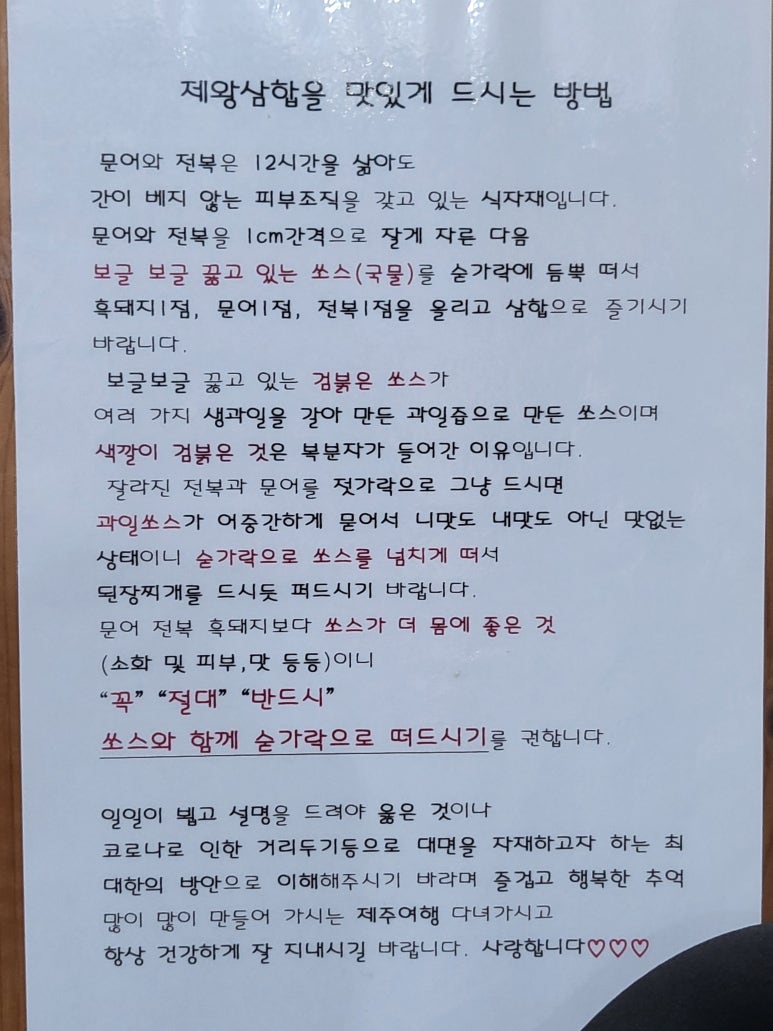 제왕삼합을 맛있게 드시는 방법
문어와 전복은 12시간을 삶아도
간이 베지 않는 피부조직을 갖고 있는 식자재입니다.
문어와 전복을 1cm간격으로 잘게 자른 다음
보글 보글 끓고 있는 쏘스(국물)를 숟가락에 듬뿍 떠서
흑돼지1점, 문어1점, 전복1점을 올리고 삼합으로 즐기시기
바랍니다.
보글보글 끓고 있는 검붉은 쏘스가
여러 가지 생과일을 갈아 만든 과일즙으로 만든 쏘스이며
색깔이 검붉은 것은 복분자가 들어간 이유입니다.
잘라진 전복과 문어를 젓가락으로 그냥 드시면
과일쏘스가 어중간하게 묻어서 니맛도 내맛도 아닌 맛없는
상태이니 숟가락으로 쏘스를 넘치게 떠서
된장찌개를 드시듯 퍼드시기 바랍니다.
문어 전복 흑돼지보다 쏘스가 더 몸에 좋은 것
(소화 및 피부,맛 등등)이니
“꼭” “절대” “반드시”
쏘스와 함께 숟가락으로 떠드시기를 권합니다.
일일이 뵙고 설명을 드려야 옳은 것이나
코로나로 인한 거리두기등으로 대면을 자재하고자 하는 최
대한의 방안으로 이해해주시기 바라며 즐겁고 행복한 추억
많이 많이 만들어 가시는 제주여행 다녀가시고
항상 건강하게 잘 지내시길 바랍니다. 사랑합니다♡♡♡